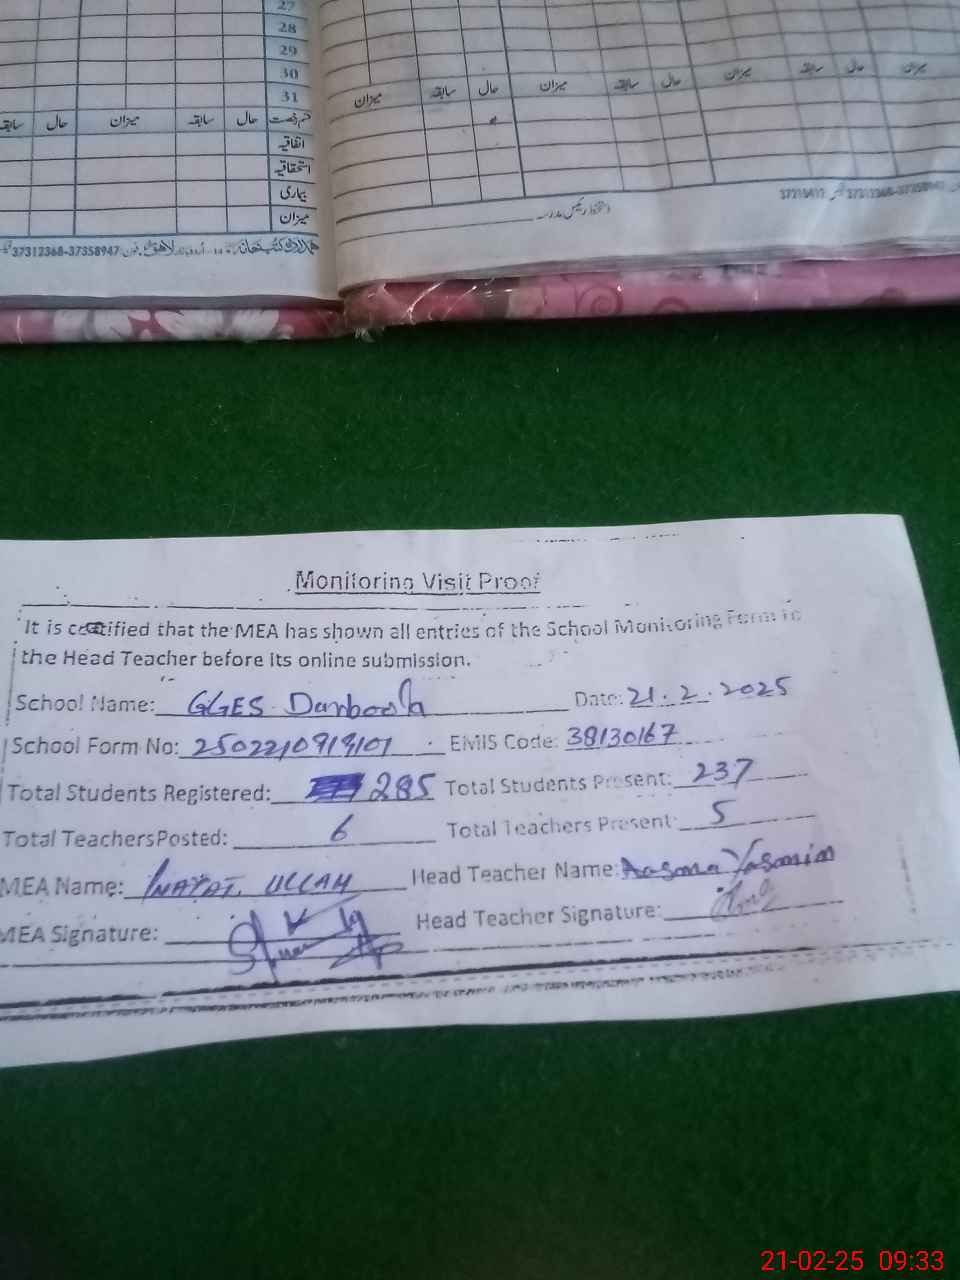 27
28
29
30
31
سابقہ حال میزان سابقہ حال قسم رخصت
اتفاقیہ
استحقاقیہ
بیماری
میزان
37312368-37358947
میزان سابقہ حال میزان سابقہ حال میزان سابقہ حال میزان
Monitoring Visit Proof
It is certified that the MEA has shown all entries of the School Monitoring Form to
the Head Teacher before its online submission.
School Name: GGES Danboola Date: 21.2.2025
School Form No: EMIS Code: 38130167
Total Students Registered: 285 Total Students Present: 237
Total Teachers Posted: 6 Total Teachers Present: 5
MEA Name: INAYAT ULLAH Head Teacher Name: Aasma Yasmin
MEA Signature: Head Teacher Signature:
21-02-25 09:33